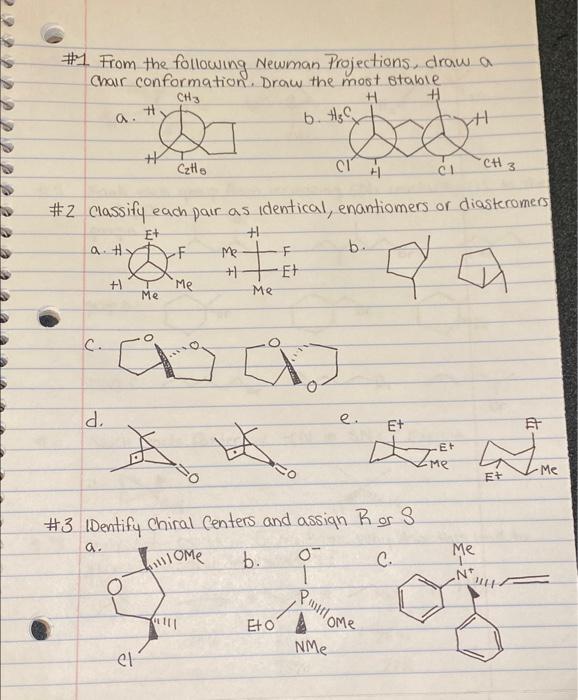 #1 From the following Newman Projections, draw a
chair conformation. Draw the most stable
a. H CH3 H C2H6
b. H3C H H H Cl H Cl CH3
#2 Classify each pair as identical, enantiomers or diasteromers
a. H Et F H Me Me
H Me F H Et Me
b.
c. O O O O
d. O O
e. Et Et Me Et Et Me
#3 IDentify Chiral Centers and assign R or S
a. OMe O Cl
b. O- P EtO OMe NMe
c. Me N+